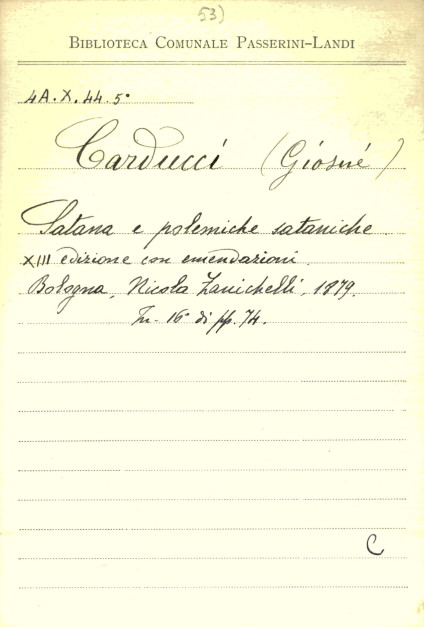 53)
BIBLIOTECA COMUNALE PASSERINI-LANDI
4A.X.44.5°
Carducci (Giosuè)
Satana e polemiche sataniche.
XIII edizione con emendazioni.
Bologna, Nicola Zanichelli, 1879.
In-16° di pp. 74.
C